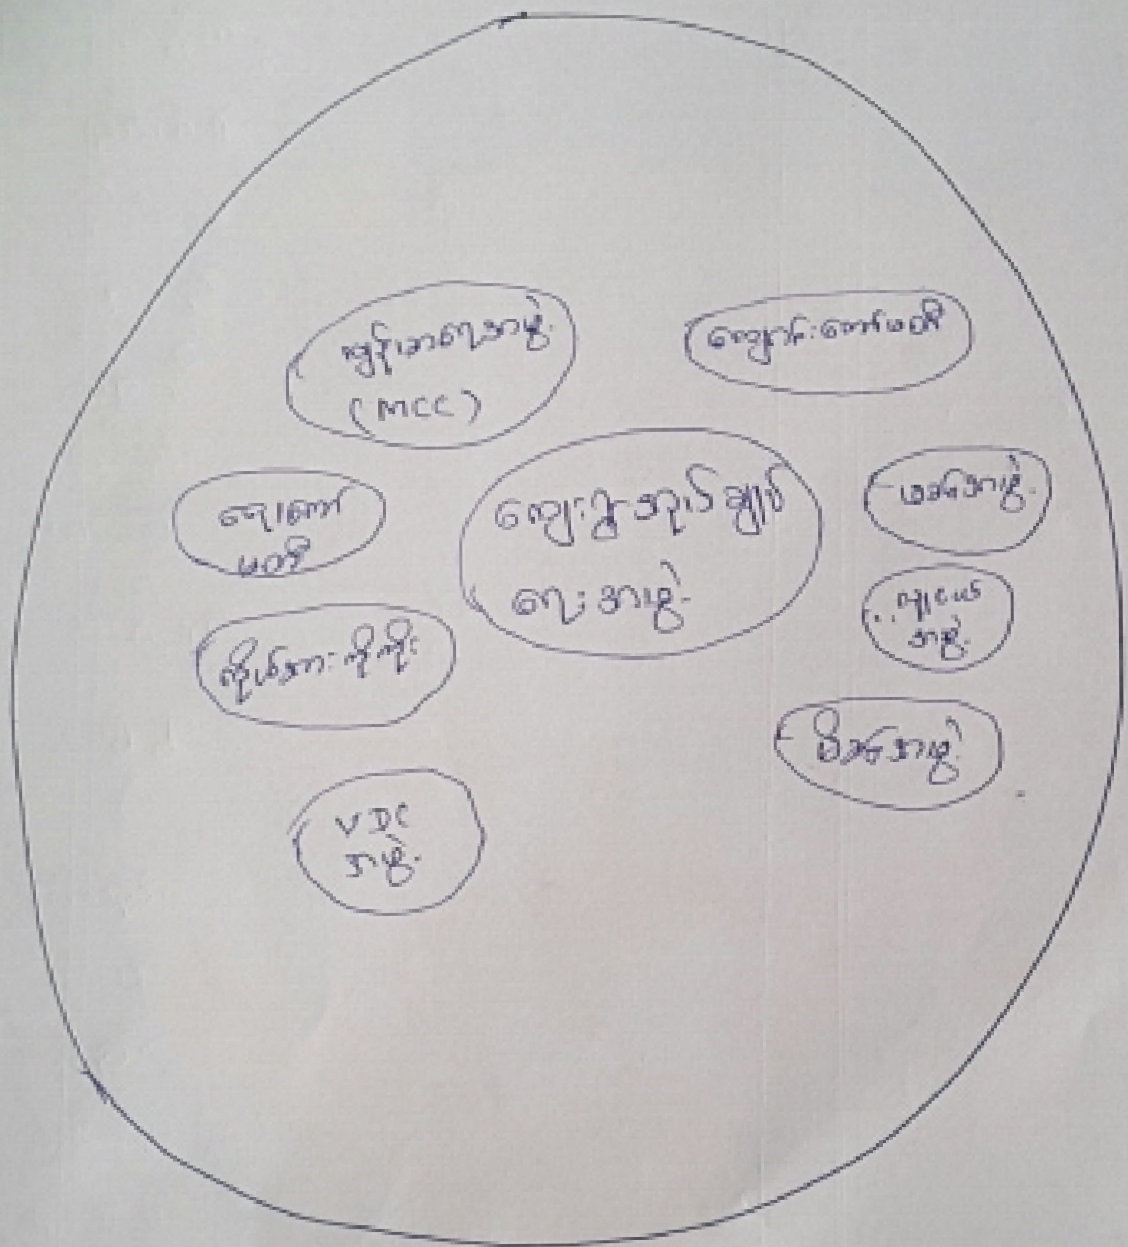 ကျန်းမာရေးအဖွဲ့
(MCC)
ကျောင်းကော်မတီ
ရေကော်
မတီ
ကျေးရွာအုပ်ချုပ်
ရေးအဖွဲ့
မအမ်အဖွဲ့
လူငယ်
အဖွဲ့
ကိုယ်အားကိုကိုး
မီးသတ်အဖွဲ့
VDC
အဖွဲ့